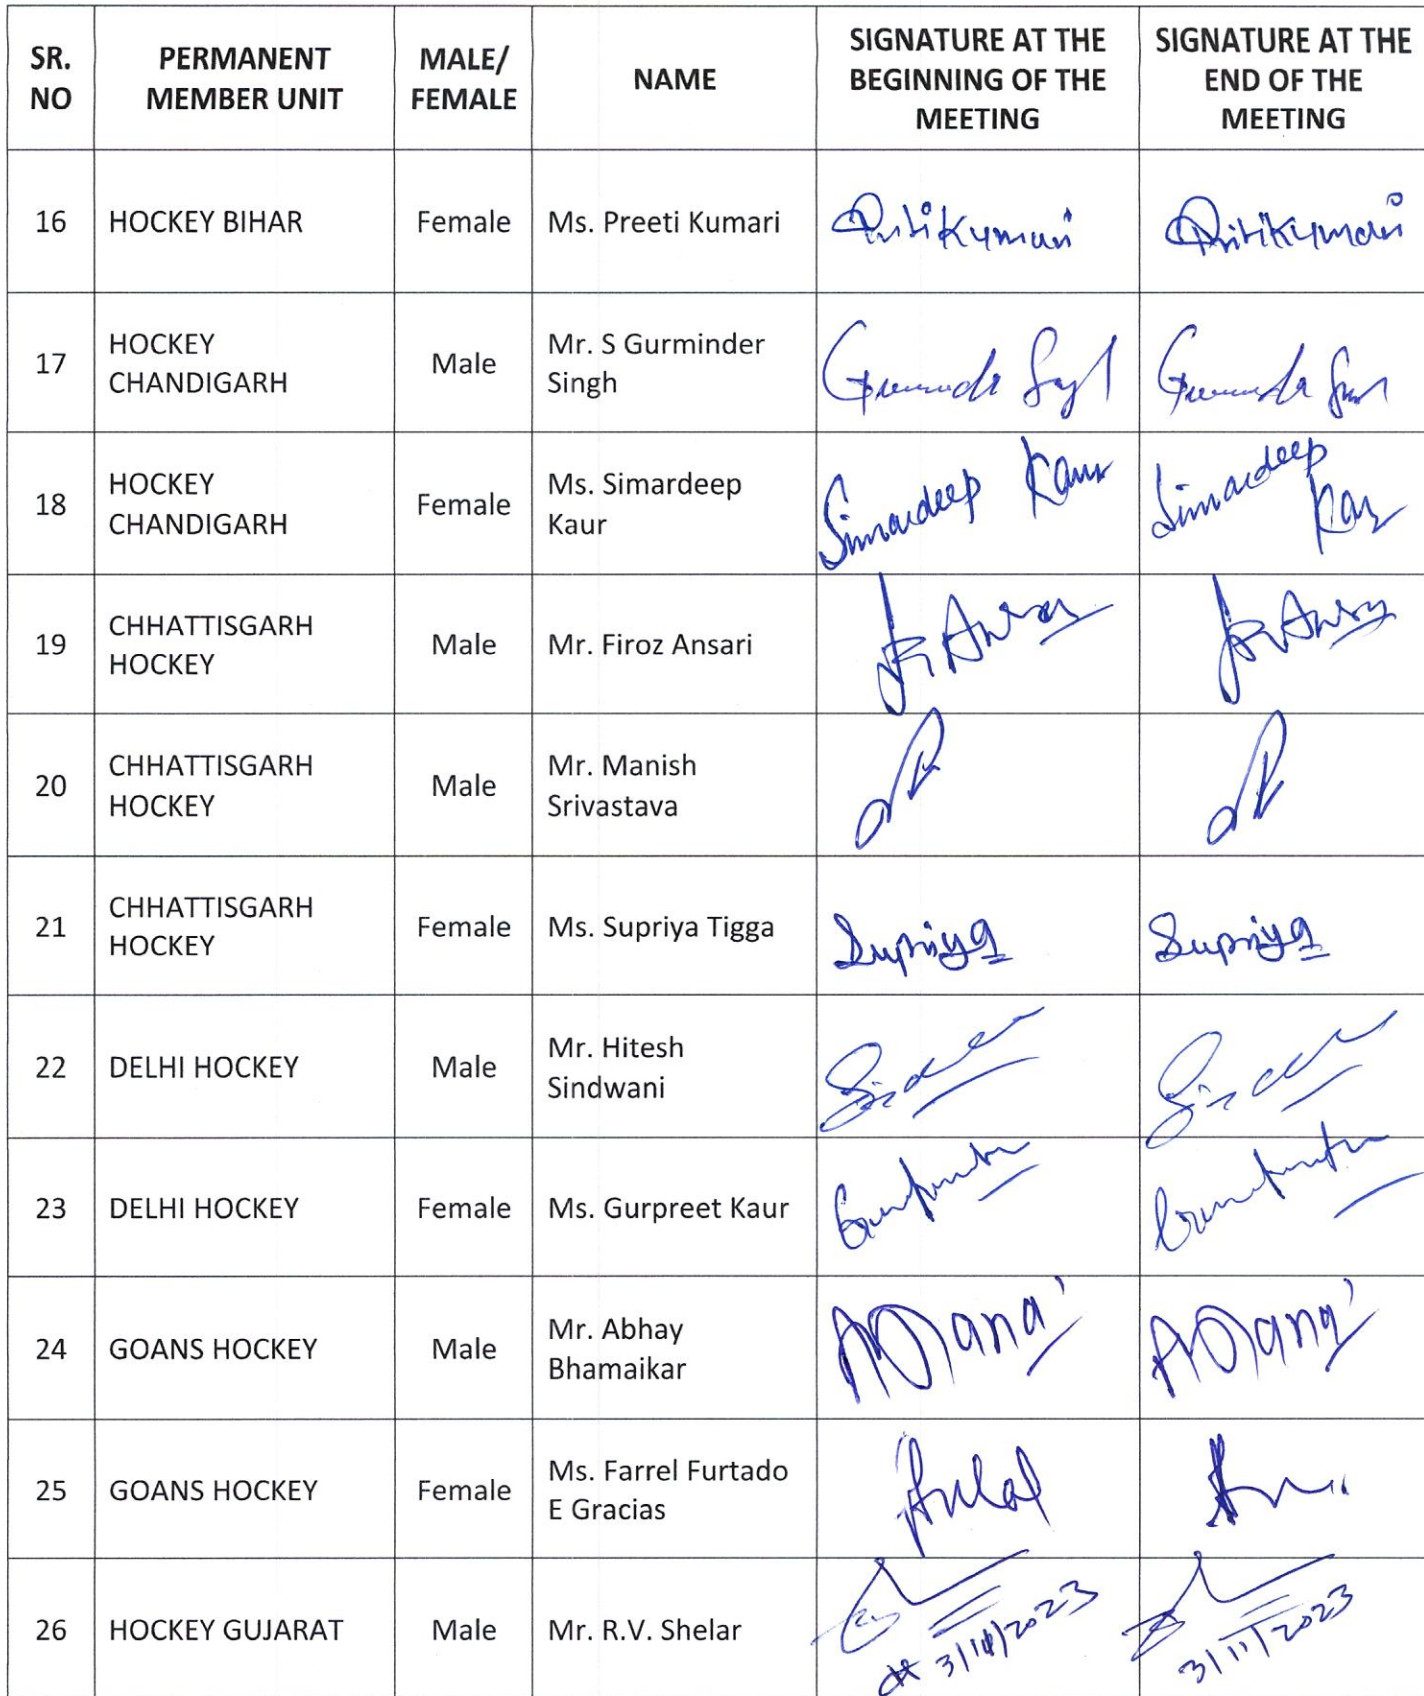 SR. NO
PERMANENT MEMBER UNIT
MALE/ FEMALE
NAME
SIGNATURE AT THE BEGINNING OF THE MEETING
SIGNATURE AT THE END OF THE MEETING
16 HOCKEY BIHAR Female Ms. Preeti Kumari Pritikumari Pritikumari
17 HOCKEY CHANDIGARH Male Mr. S Gurminder Singh
18 HOCKEY CHANDIGARH Female Ms. Simardeep Kaur Simardeep Kaur Simardeep Kaur
19 CHHATTISGARH HOCKEY Male Mr. Firoz Ansari
20 CHHATTISGARH HOCKEY Male Mr. Manish Srivastava
21 CHHATTISGARH HOCKEY Female Ms. Supriya Tigga Supriya Supriya
22 DELHI HOCKEY Male Mr. Hitesh Sindwani
23 DELHI HOCKEY Female Ms. Gurpreet Kaur
24 GOANS HOCKEY Male Mr. Abhay Bhamaikar
25 GOANS HOCKEY Female Ms. Farrel Furtado E Gracias
26 HOCKEY GUJARAT Male Mr. R.V. Shelar 3/11/2023 3/11/2023